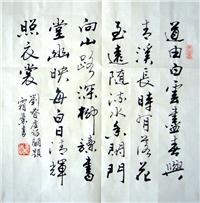 道由白雲盡春與
青溪長時有落花
至遠随流水香閑門
向山路深柳讀書
堂幽映每白日清輝
照衣裳
劉眘虛詩闕題